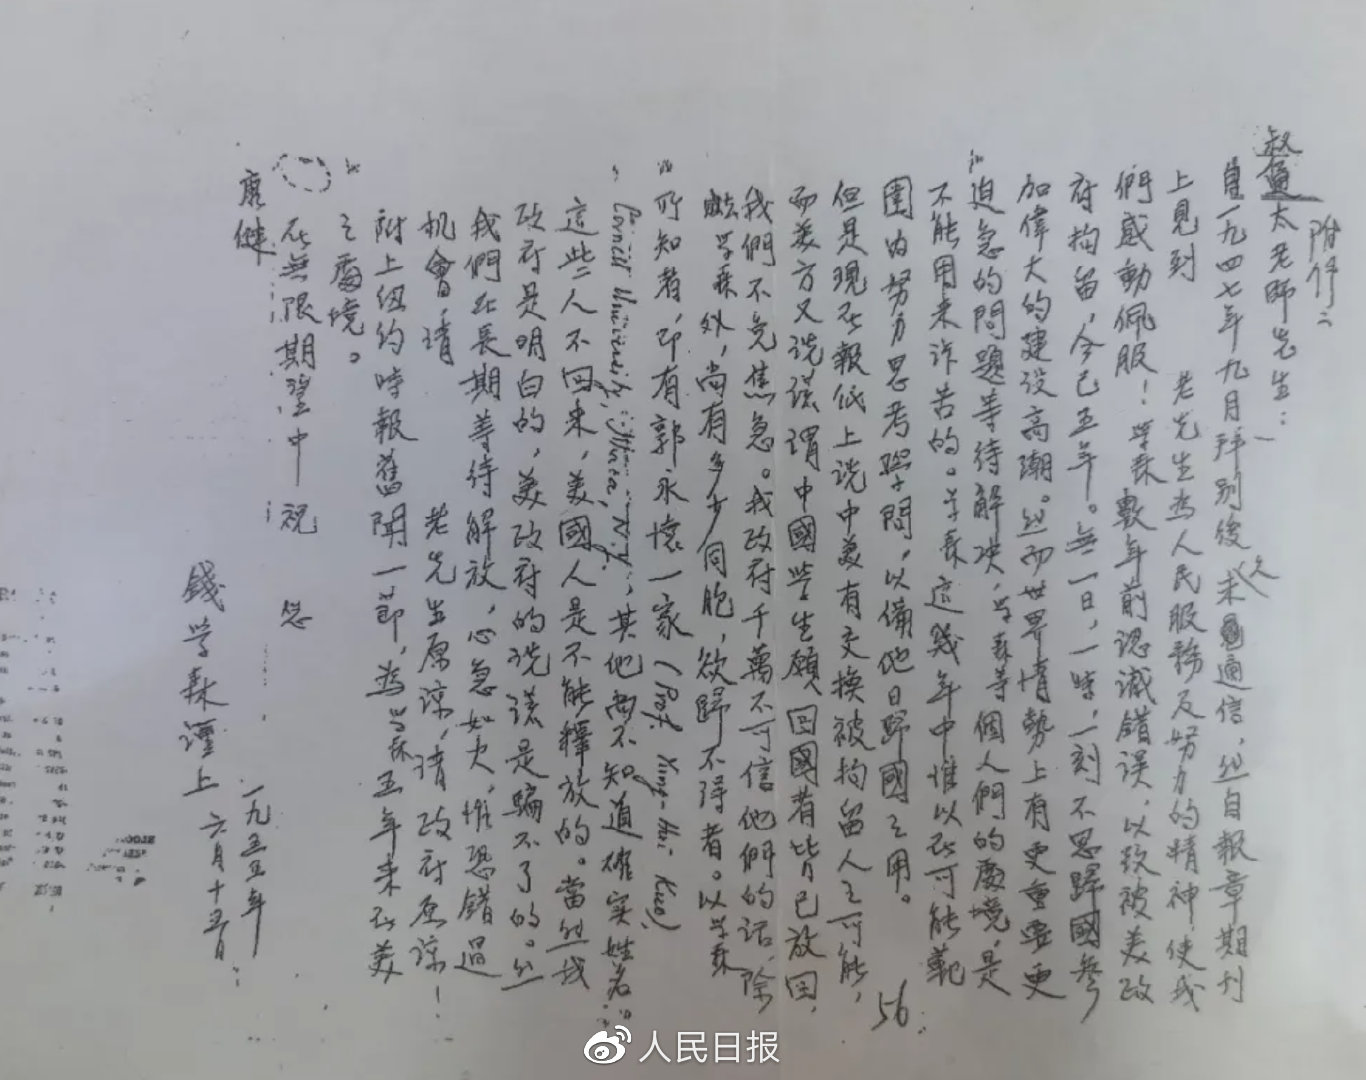 附件二
叔通太老師先生：
自一九四七年九月拜别後 未通信，然自報章期刊
久
上見到 老先生為人民服務及努力的精神使我
們感動佩服！学森數年前認識錯誤，以致被美政
府拘留，今已五年。無一日，一時，一刻不思歸國參
加偉大的建设高潮。然而世界情勢上有更重要更
迫急的問題等待解决，学森等個人們的處境，是
不能用来诉苦的。学森這幾年中惟以在可能範
圍内努力思考學問，以備他日歸國之用。
56
但是現在報纸上说中美有交換被拘留人之可能，
而美方又说谎謂中國学生願回國者皆已放回，
我們不免焦急。我政府千萬不可信他們的话，除
学森外，尚有多少同胞，欲歸不得者。以学森
所知者，即有郭永懷一家（Prof. Yung-Huai Kuo,
Cornell University, Ithaca, N.Y.），其他尚不知道確实姓名。
這些人不回来，美國人是不能釋放的。當然我
政府是明白的，美政府的说谎是騙不了的。然
我們在長期等待解放，心急如火，惟恐錯過
机會，请 老先生原谅，请政府原谅！
附上纽约時報舊聞一節，為学森五年来在美
之處境。
在無限期望中祝您
康健
錢学森謹上
一九五五年
六月十五日
人民日报